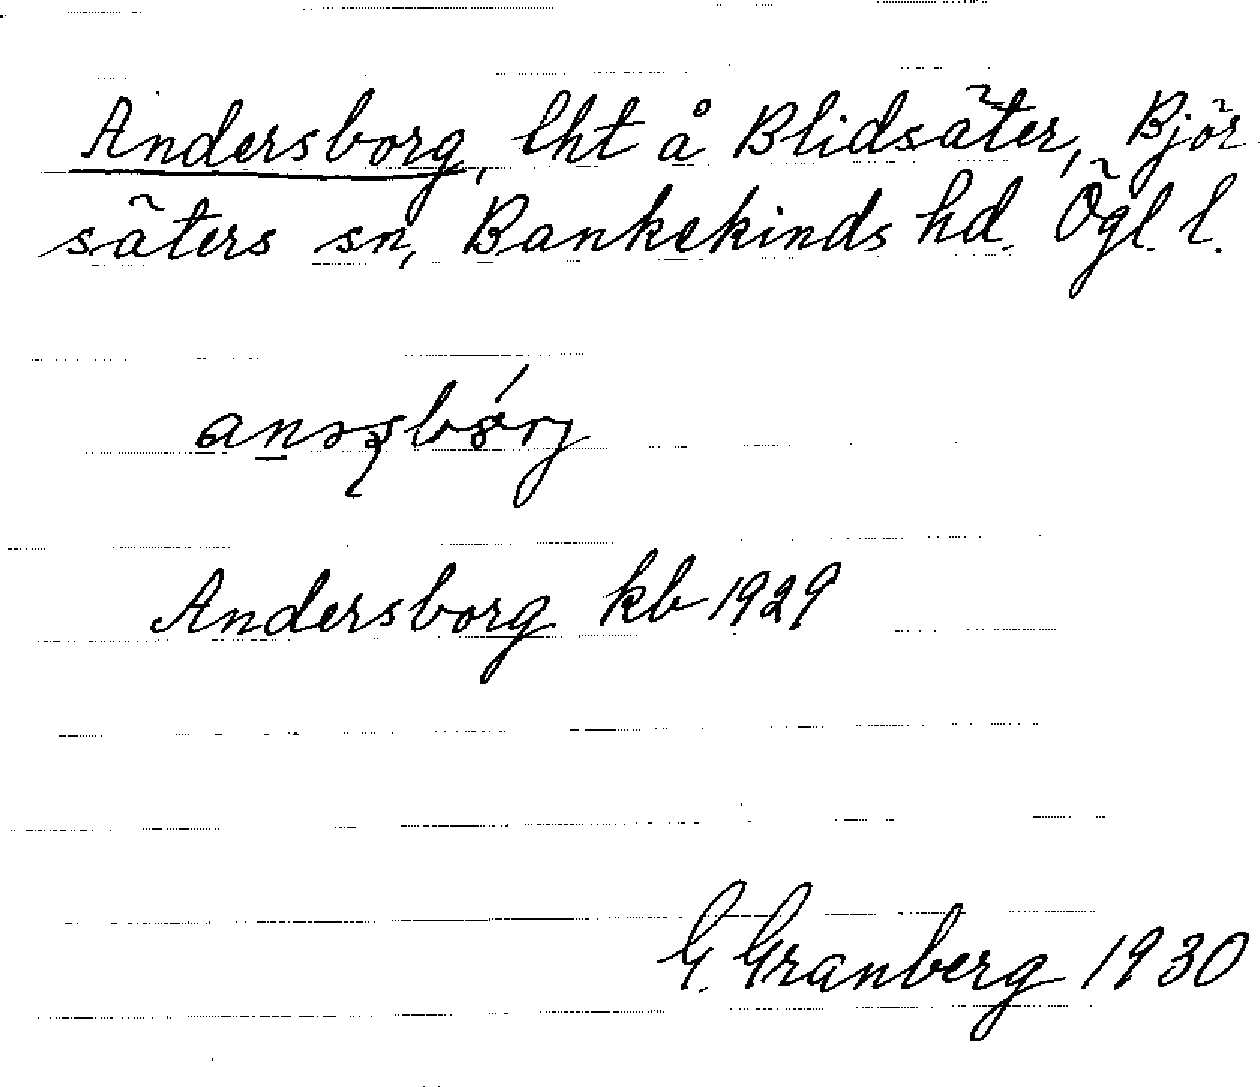 Andersborg, lht å Blidsäter, Bjór
säters sn, Bankekinds hd. Ögl l.
Andersborg kb 1929
G. Granberg 1930